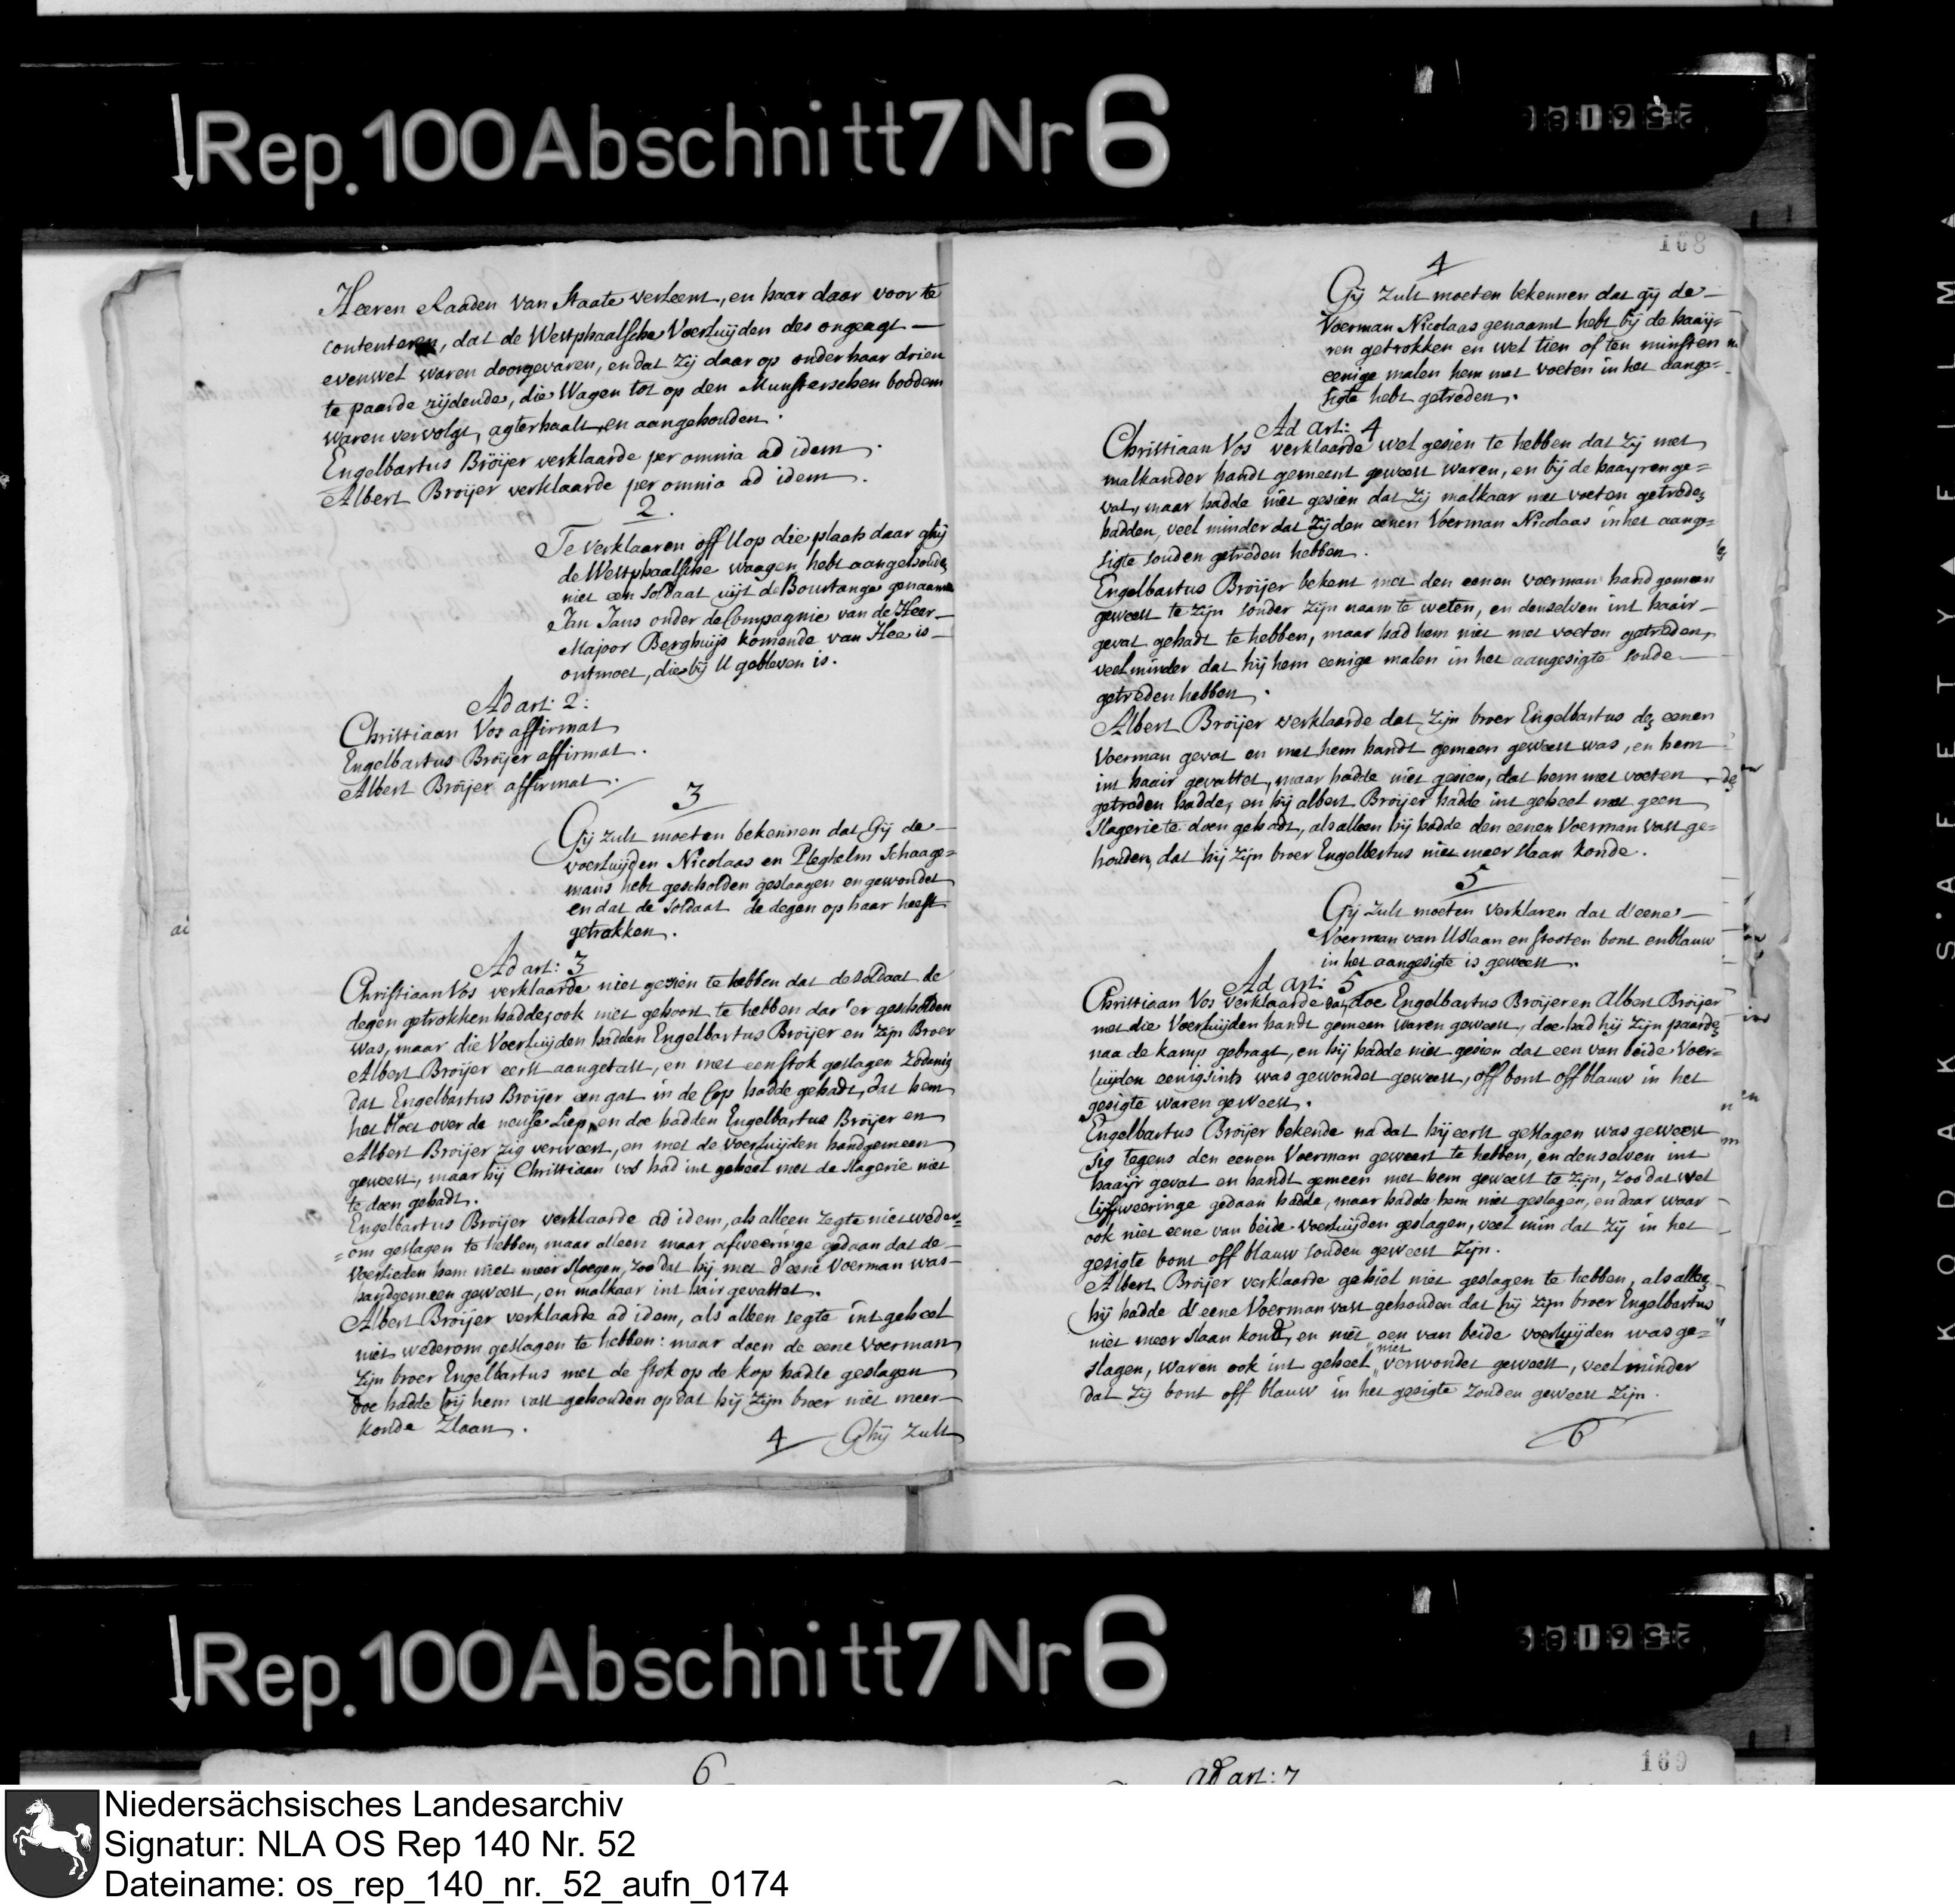 Rep. 100 Abschnitt 7 Nr 6
Heeren Raaden van Staate verleent, en haar daar voor te
contenteren, dat de Westphaalsche Voerluijden des ongeagt
evenwel waren doorgevaren, en dat zij daar op onder haar drien
te paarde rijdende, die Wagen tot op den Munsterschen boodem
waren vervolgt, agterhaalt, en aangehouden.
Engelbartus Bröijer verklaarde per omnia ad idem.
Albert Broijer verklaarde per omnia ad idem.
2.
Te verklaaren off U op die plaats daar ghij
de Westphaalsche waagen hebt aangehouden
niet een soldaat uijt de Bourtange genaamt
Jan Jans onder de Compagnie van de Heer
Major Berghuijs komende van Hee is
ontmoet, die bij U gebleven is.
Ad art: 2:
Christiaan Vos affirmat
Engelbartus Bröijer affirmat.
Albert Bröijer affirmat.
3
Gij zult moeten bekennen dat Gij de
voerluijden Nicolaas en Pleghelm Schaage=
mans hebt gescholden geslaagen en gewondet
en dat de Soldaat de degen op haar heeft
getrokken.
Ad art: 3
Christiaan Vos verklaarde niet gesien te hebben dat de soldaat de
degen getrokken hadde, ook niet gehoort te hebben dat 'er gescholden
was, maar die Voerluijden hadden Engelbartus Broijer en zijn Broer
Albert Broijer eerst aangetast, en met een stok geslagen zodanig
dat Engelbartus Broijer een gat in de Cop hadde gehadt, dat hem
het bloet over de neuse Liep, en doe hadden Engelbartus Bröijer en
Albert Broijer zig verweert, en met de voerluijden handgemeen
geweest, maar hij Christiaan vos had int geheel met de slagerie niet
te doen gehadt.
Engelbartus Broijer verklaarde ad idem, als alleen zegte niet weder=
=om geslagen te hebben, maar alleen maar afweeringe gedaan dat de
Voerlieden hem niet meer sloegen, zoo dat hij met d'eene Voerman was
handgemeen geweest, en malkaar int hair gevattet.
Albert Broijer verklaarde ad idem, als alleen segte int geheel
niet wederom geslagen te hebben: maar doen de eene Voerman
zijn broer Engelbartus met de stok op de kop hadde geslagen
doe hadde hij hem vast gehouden op dat hij zijn broer niet meer
konde zlaan.
4 Ghij zult
168
4
Gij zult moeten bekennen dat gij de
Voerman Nicolaas genaamt hebt bij de haaij=
ren getrokken en wel tien of ten minsten
eenige malen hem met voeten in het aange=
sigte hebt getreden.
Ad art: 4
Christiaan Vos verklaarde wel gesien te hebben dat zij met
malkander handt gemeent geweest waren, en bij de haayren ge=
vat, maar hadde niet gesien dat zij malkaar met voeten getreden
hadden, veel minder dat zij den eenen Voerman Nicolaas in het aange=
sigte souden getreden hebben.
Engelbartus Broijer bekent met den eenen voerman handgemeen
geweest te zijn sonder zijn naam te weten, en denselven int haair
gevat gehadt te hebben, maar had hem niet met voeten getreden,
veel minder dat hij hem eenige malen in het aangesigte soude
getreden hebben.
Albert Broijer verklaarde dat zijn broer Engelbartus den eenen
Voerman gevat en met hem handt gemeen geweest was, en hem
int haair gevattet, maar hadde niet gesien, dat hem met voeten
getreden hadde, en hij albert Broijer hadde int geheel met geen
slagerie te doen gehadt, als alleen hij hadde den eenen Voerman vast ge=
houden, dat hij zijn broer Engelbertus niet meer slaan konde.
5
Gij zult moeten verklaren dat d'eene
Voerman van U slaan en stooten bont en blauw
in het aangesigte is geweest.
Ad art: 5
Christiaan Vos verklaarde dat, doe Engelbartus Broijer en Albert Broijer
met die Voerluijden handt gemeen waren geweest, doe had hij zijn paarden
naa de kamp gebragt, en hij hadde niet gesien dat een van beide Voer=
luijden eenigsints was gewondet geweest, off bont off blauw in het
gesigte waren geweest.
Engelbartus Broijer bekende na dat hij eerst geslagen was geweest
sig tegens den eenen Voerman geweert te hebben, en denselven int
haaijr gevat en handt gemeen met hem geweest te zijn, zoo dat wel
lijfweeringe gedaan hadde, maar hadde hem niet geslagen, en daar waar
ook niet eene van beide voerluijden geslagen, veel min dat zij in het
gesigte bont off blauw souden geweest zijn.
Albert Broijer verklaarde geheel niet geslagen te hebben, als alleen
hij hadde d'eene Voerman vast gehouden dat hij zijn broer Engelbartus
niet meer slaan konde, en niet een van beide voerluijden was ge=
slagen, waren ook int geheel niet verwondet geweest, veel minder
dat zij bont off blauw in het gesigte zouden geweest zijn.
6
KODAK · SAFETY ▲ FILM ▲
Rep. 100 Abschnitt 7 Nr 6
6
169
ad art: 7
Niedersächsisches Landesarchiv
Signatur: NLA OS Rep 140 Nr. 52
Dateiname: os_rep_140_nr._52_aufn_0174